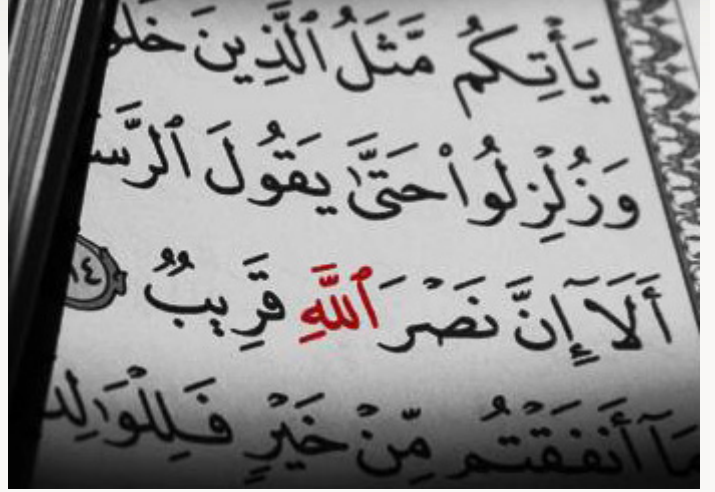 يَأْتِكُم مَّثَلُ ٱلَّذِينَ خَلَوْ
وَزُلْزِلُوا۟ حَتَّىٰ يَقُولَ ٱلرَّسُ
أَلَآ إِنَّ نَصْرَ ٱللَّهِ قَرِيبٌ ١٤
مَآ أَنفَقْتُم مِّنْ خَيْرٍ فَلِلْوَٰلِدَ